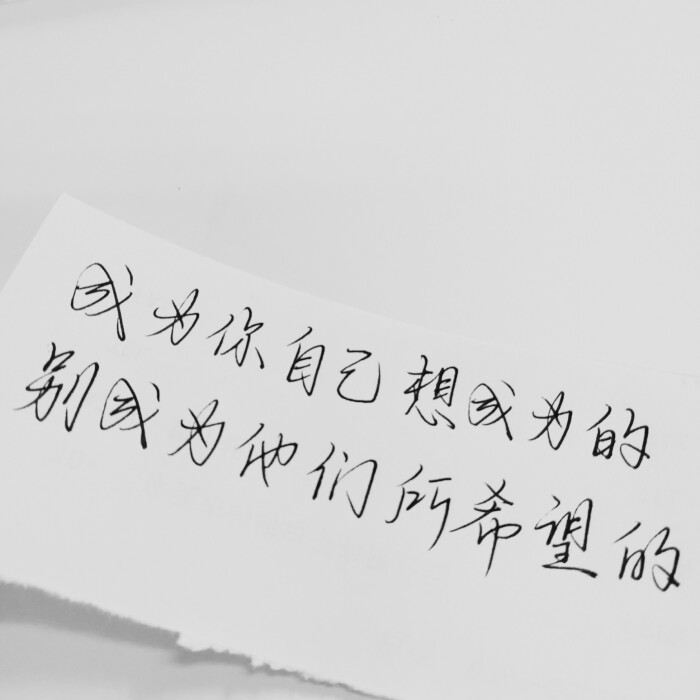 成为你自己想成为的
别成为他们所希望的